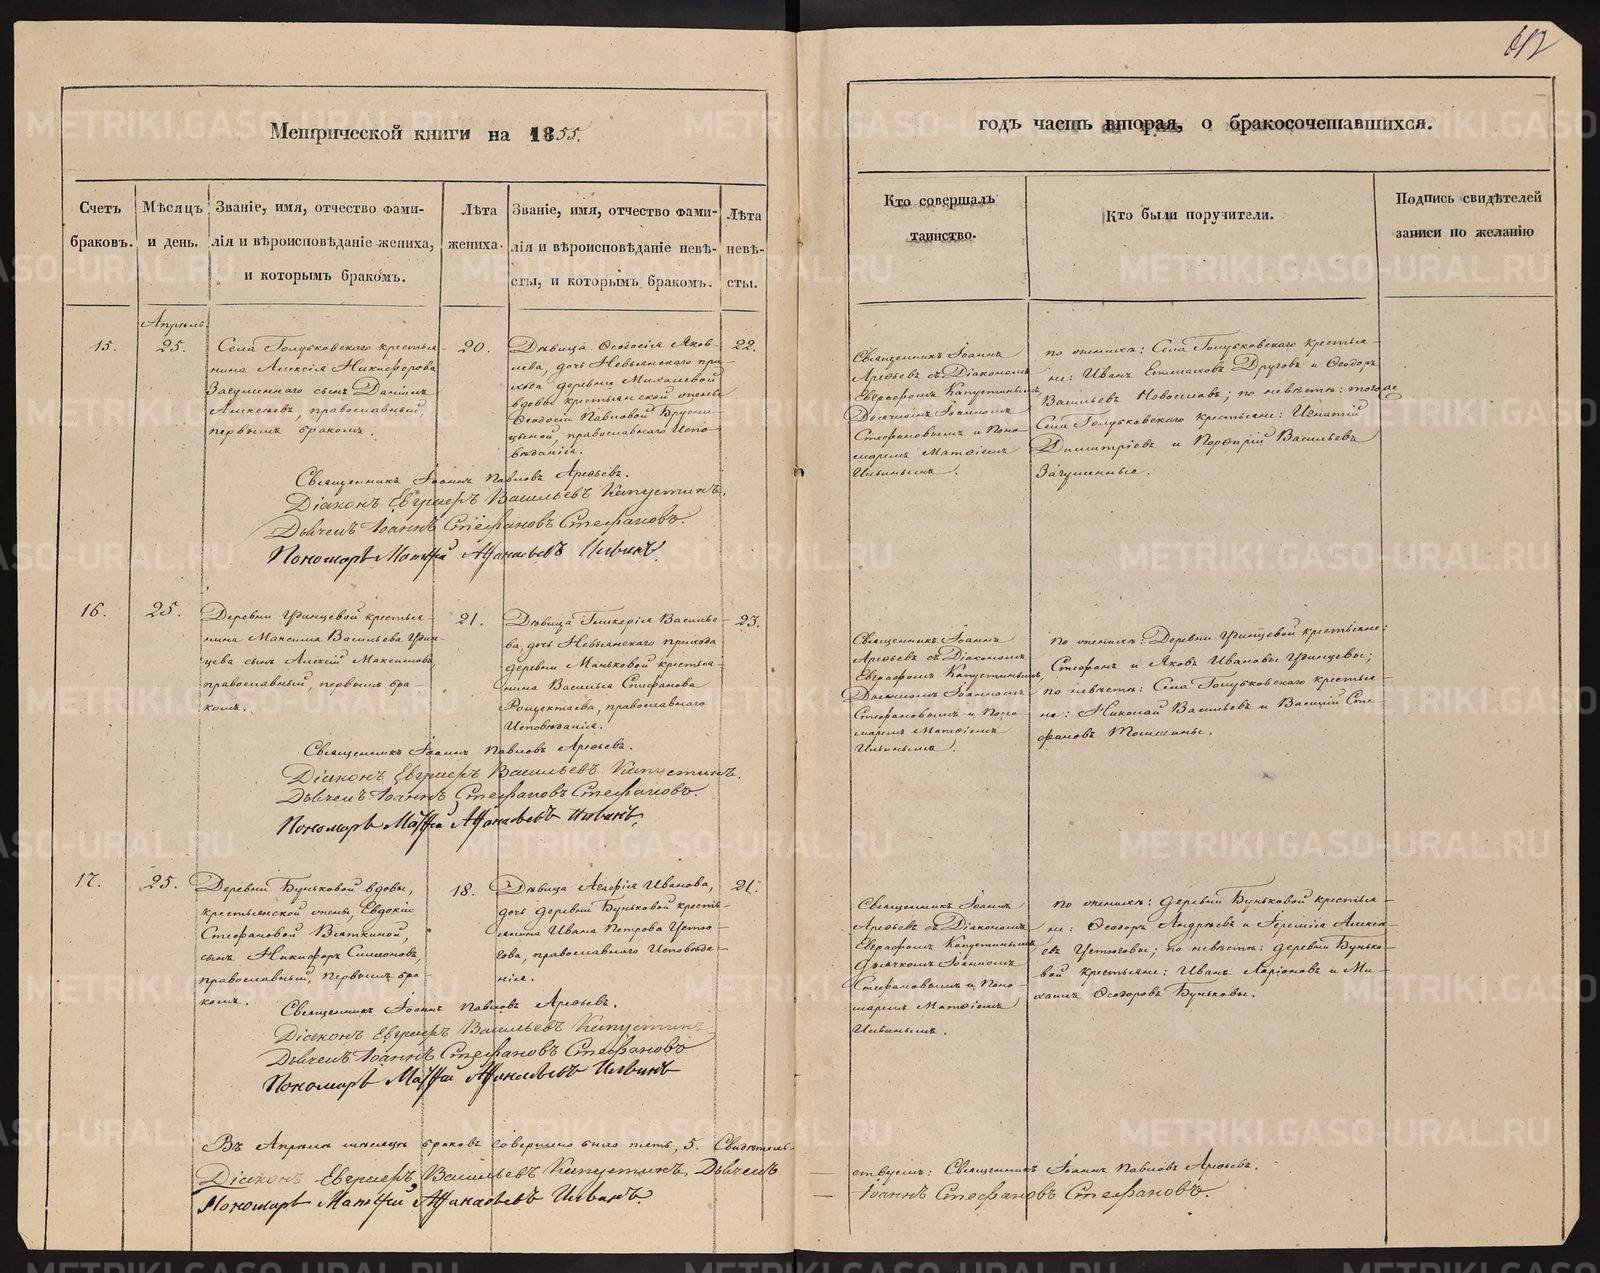 612
Метрической книги на 1855.
годъ часть вторая, о бракосочетавшихся.
Счетъ браковъ.
Мѣсяцъ и день.
Званіе, имя, отчество фами-
лія и вѣроисповѣданіе жениха,
и которымъ бракомъ.
Лѣта
жениха.
Званіе, имя, отчество фами-
лія и вѣроисповѣданіе невѣ-
сты, и которымъ бракомъ.
Лѣта
невѣ-
сты.
Кто совершалъ
таинство.
Кто были поручители.
Подпись свидѣтелей
записи по желанію
15.
Апрѣль
25.
Села Голубковскаго крестья-
нина Алексія Никифорова
сынъ Даніилъ
Алексѣевъ, православный,
первымъ бракомъ.
20.
Дѣвица Ѳеодосія Яков-
лева, дочь Невьянскаго при-
хода деревни Михалевой
вдовы крестьянской жены
Ѳеодосіи Павловой Брусни-
цыной, православнаго Испо-
вѣданія.
22.
Священникъ Іоаннъ
Арефьевъ съ Діакономъ
Евграфомъ Капустинымъ,
Дьячкомъ Іоанномъ
Стефановымъ и Поно-
маремъ Матѳіемъ
Ильинымъ.
по женихѣ: Села Голубковскаго крестья-
не: Иванъ Друговъ и Ѳеодоръ
Васильевъ Новоселовъ; по невѣстѣ: того же
Села Голубковскаго крестьяне: Игнатій
Димитріевъ и Порфирій Васильевъ
Священникъ Іоаннъ Павловъ Арефьевъ.
Діаконъ Евграфъ Васильевъ Капустинъ.
Дьячекъ Іоаннъ Стефановъ Стефановъ.
Пономарь Матѳій Аѳанасьевъ Ильинъ.
16.
25.
Деревни крестья-
нина Максима Васильева
сынъ Алексій Максимовъ,
православный, первымъ бра-
комъ.
21.
Дѣвица Гликерія Василье-
ва, дочь Невьянскаго прихода
деревни Маньковой крестья-
нина Василья Стефанова
православнаго
Исповѣданія.
23.
Священникъ Іоаннъ
Арефьевъ съ Діакономъ
Евграфомъ Капустинымъ,
Дьячкомъ Іоанномъ
Стефановымъ и Поно-
маремъ Матѳіемъ
Ильинымъ.
по женихѣ: Деревни крестьяне:
Стефанъ и Яковъ Ивановы
по невѣстѣ: Села Голубковскаго крестья-
не: Николай Васильевъ и Василій Сте-
фановъ
Священникъ Іоаннъ Павловъ Арефьевъ.
Діаконъ Евграфъ Васильевъ Капустинъ.
Дьячекъ Іоаннъ Стефановъ Стефановъ.
Пономарь Матѳій Аѳанасьевъ Ильинъ.
17.
25.
Деревни Буньковой вдовы,
крестьянской жены, Евдокіи
Стефановой Вяткиной,
сынъ Никифоръ Симеоновъ,
православный, первымъ бра-
комъ.
18.
Дѣвица Агафія Иванова,
дочь деревни Буньковой кресть-
янина Ивана Петрова Устю-
гова, православнаго Исповѣда-
нія.
21.
Священникъ Іоаннъ
Арефьевъ съ Діакономъ
Евграфомъ Капустинымъ
Дьячкомъ Іоанномъ
Стефановымъ и Поно-
маремъ Матѳіемъ
Ильинымъ.
по женихѣ: деревни Буньковой крестья-
не: Ѳеодоръ Андреевъ и Іеремія Алексе-
евъ Устюговы; по невѣстѣ: деревни Бунько-
вой крестьяне: Иванъ Ларіоновъ и Ми-
хаилъ Ѳеодоровъ Буньковы.
Священникъ Іоаннъ Павловъ Арефьевъ.
Діаконъ Евграфъ Васильевъ Капустинъ
Дьячекъ Іоаннъ Стефановъ Стефановъ
Пономарь Матѳій Аѳанасьевъ Ильинъ
Въ Апрѣлѣ мѣсяцѣ браковъ совершено было пять, 5. Свидѣтель-
ствуемъ: Священникъ Іоаннъ Павловъ Арефьевъ.
Діаконъ Евграфъ Васильевъ Капустинъ, Дьячекъ
Іоаннъ Стефановъ Стефановъ.
Пономарь Матѳій Аѳанасьевъ Ильинъ.
METRIKI.GASO-URAL.RU